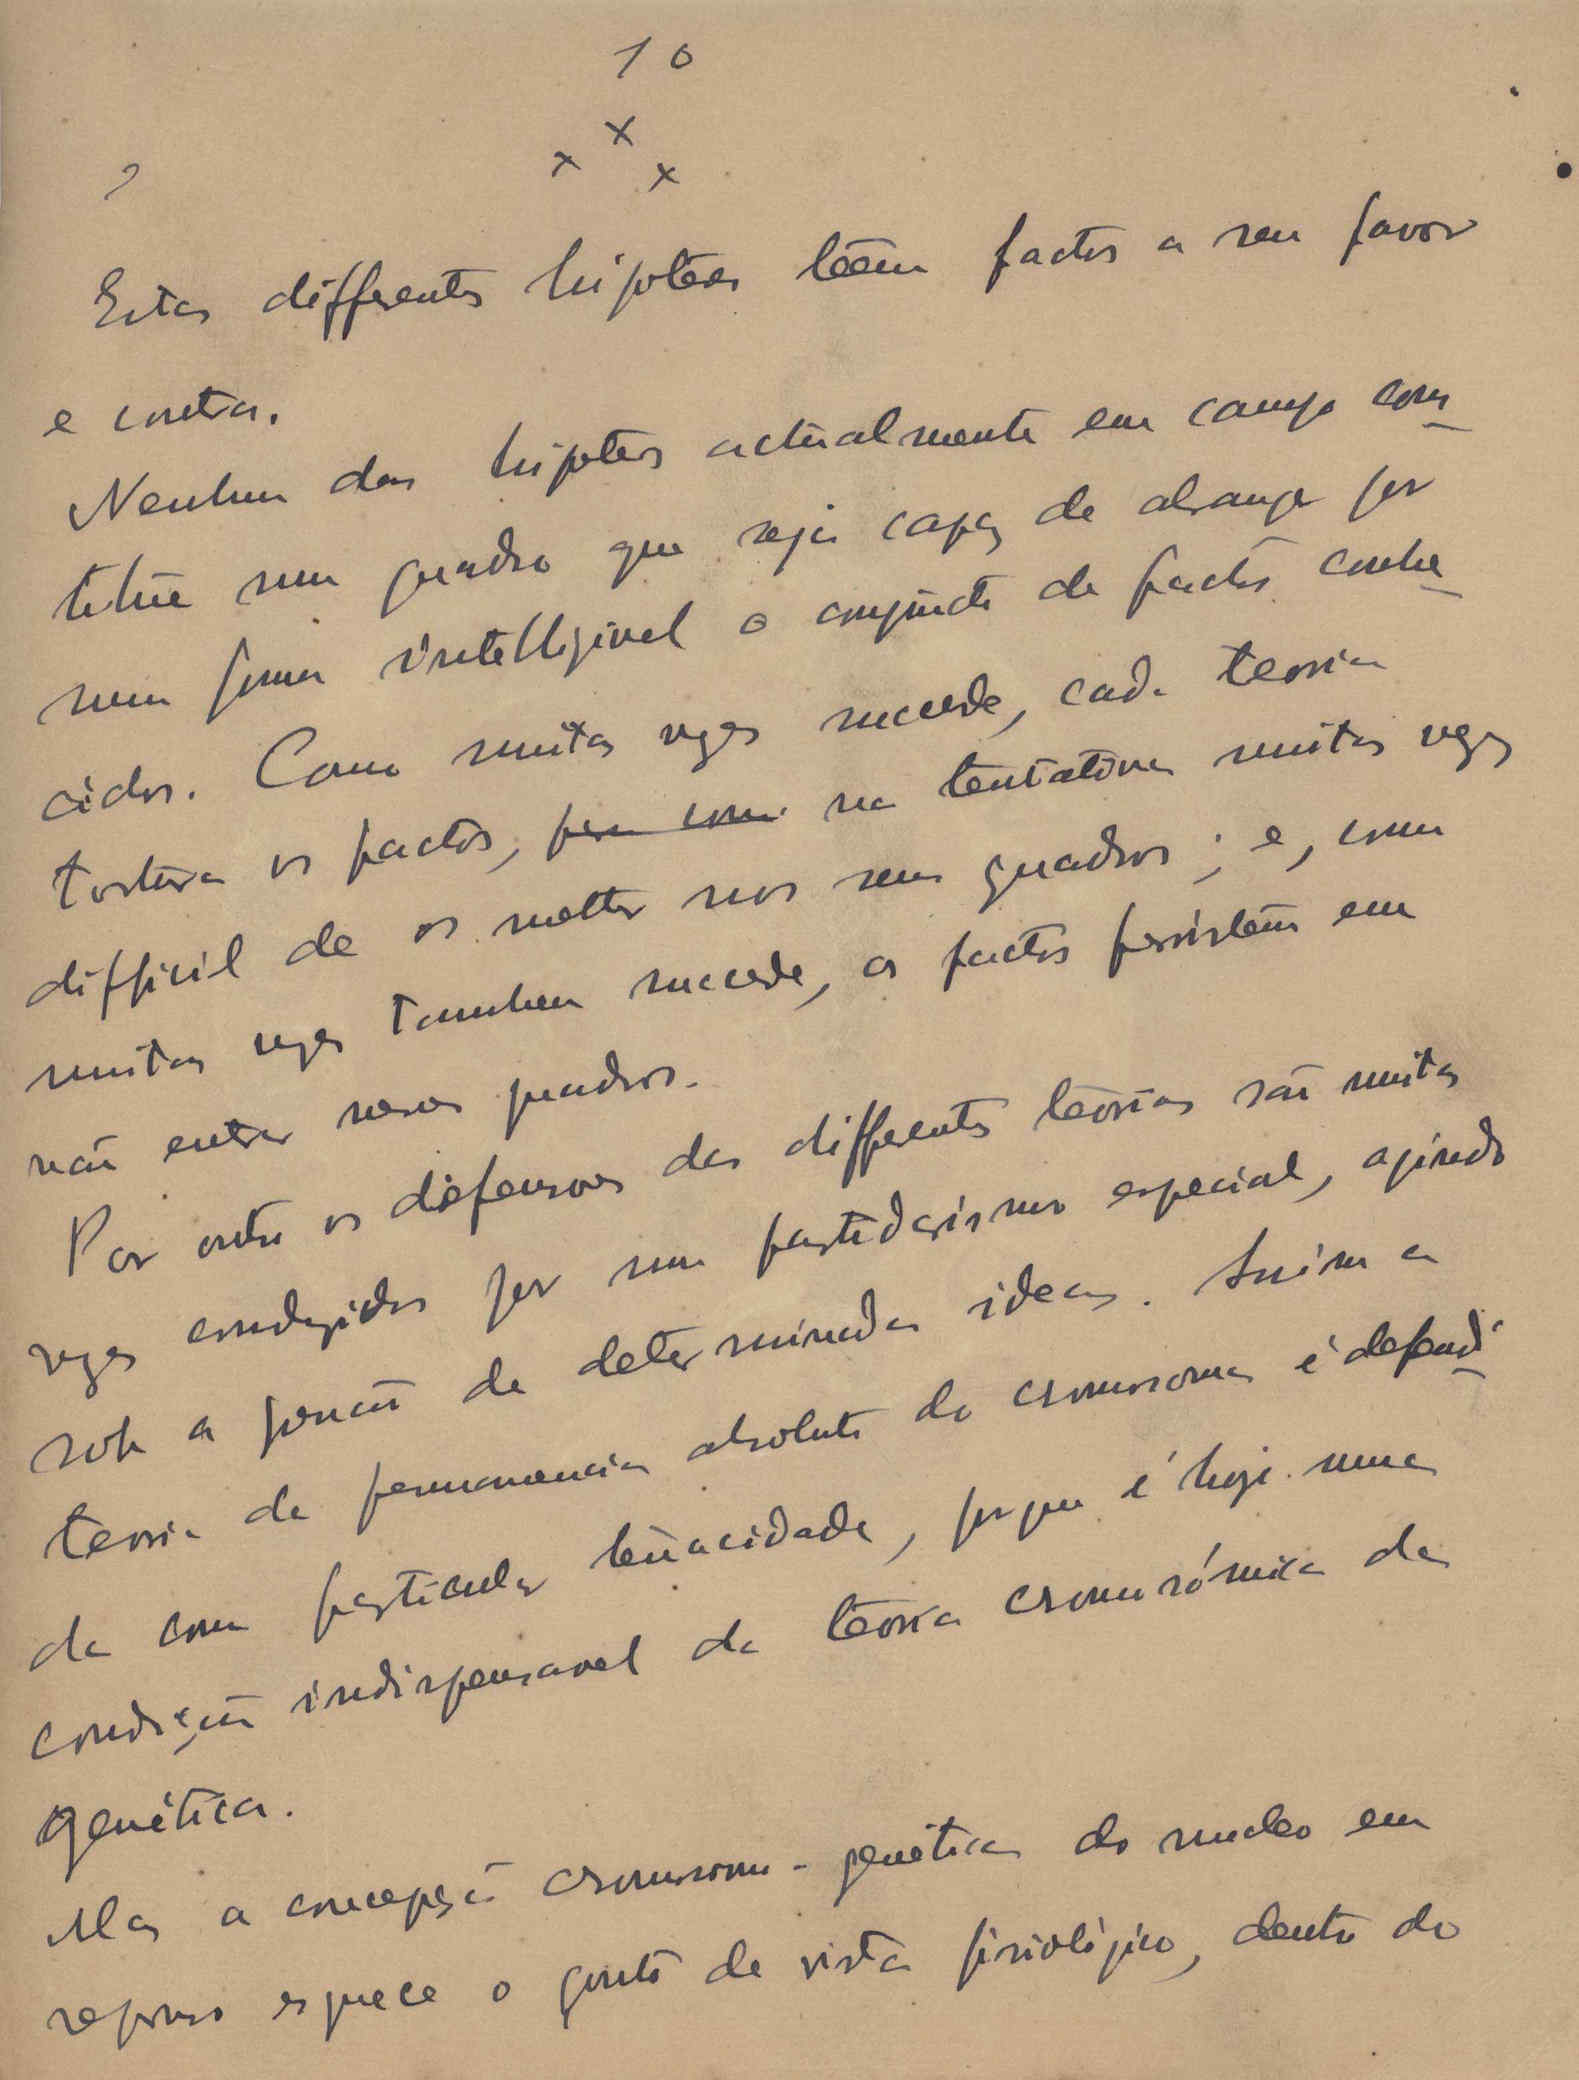 10
x x x
Estas differentes hipoteses teem factos a seu favor
e contra.
Nenhum das hipoteses actualmente em campo cons-
titue um quadro que seja capaz de abranger por
uma forma intelligivel o conjuncto de factos conhe-
cidos. Como muitas vezes succede, cada teoria
tortura os factos, na tentativa muitas vezes
difficil de os metter nos seus quadros; e, como
muitas vezes tambem succede, os factos persistem em
não entrar nesses quadros.
Por outro os defensores das differentes teorias são muitas
vezes conduzidos por um partidarismo especial, agindo
sob a pressão de determinadas ideas. Assim a
teoria da permanencia absoluta do cromosoma é defendi-
da com particular tenacidade, porque é hoje uma
condição indispensavel da teoria cromosómica da
genética.
Mas a concepção cromosomo-genética do nucleo em
repouso esquece o ponto de vista fisiológico, dentro do